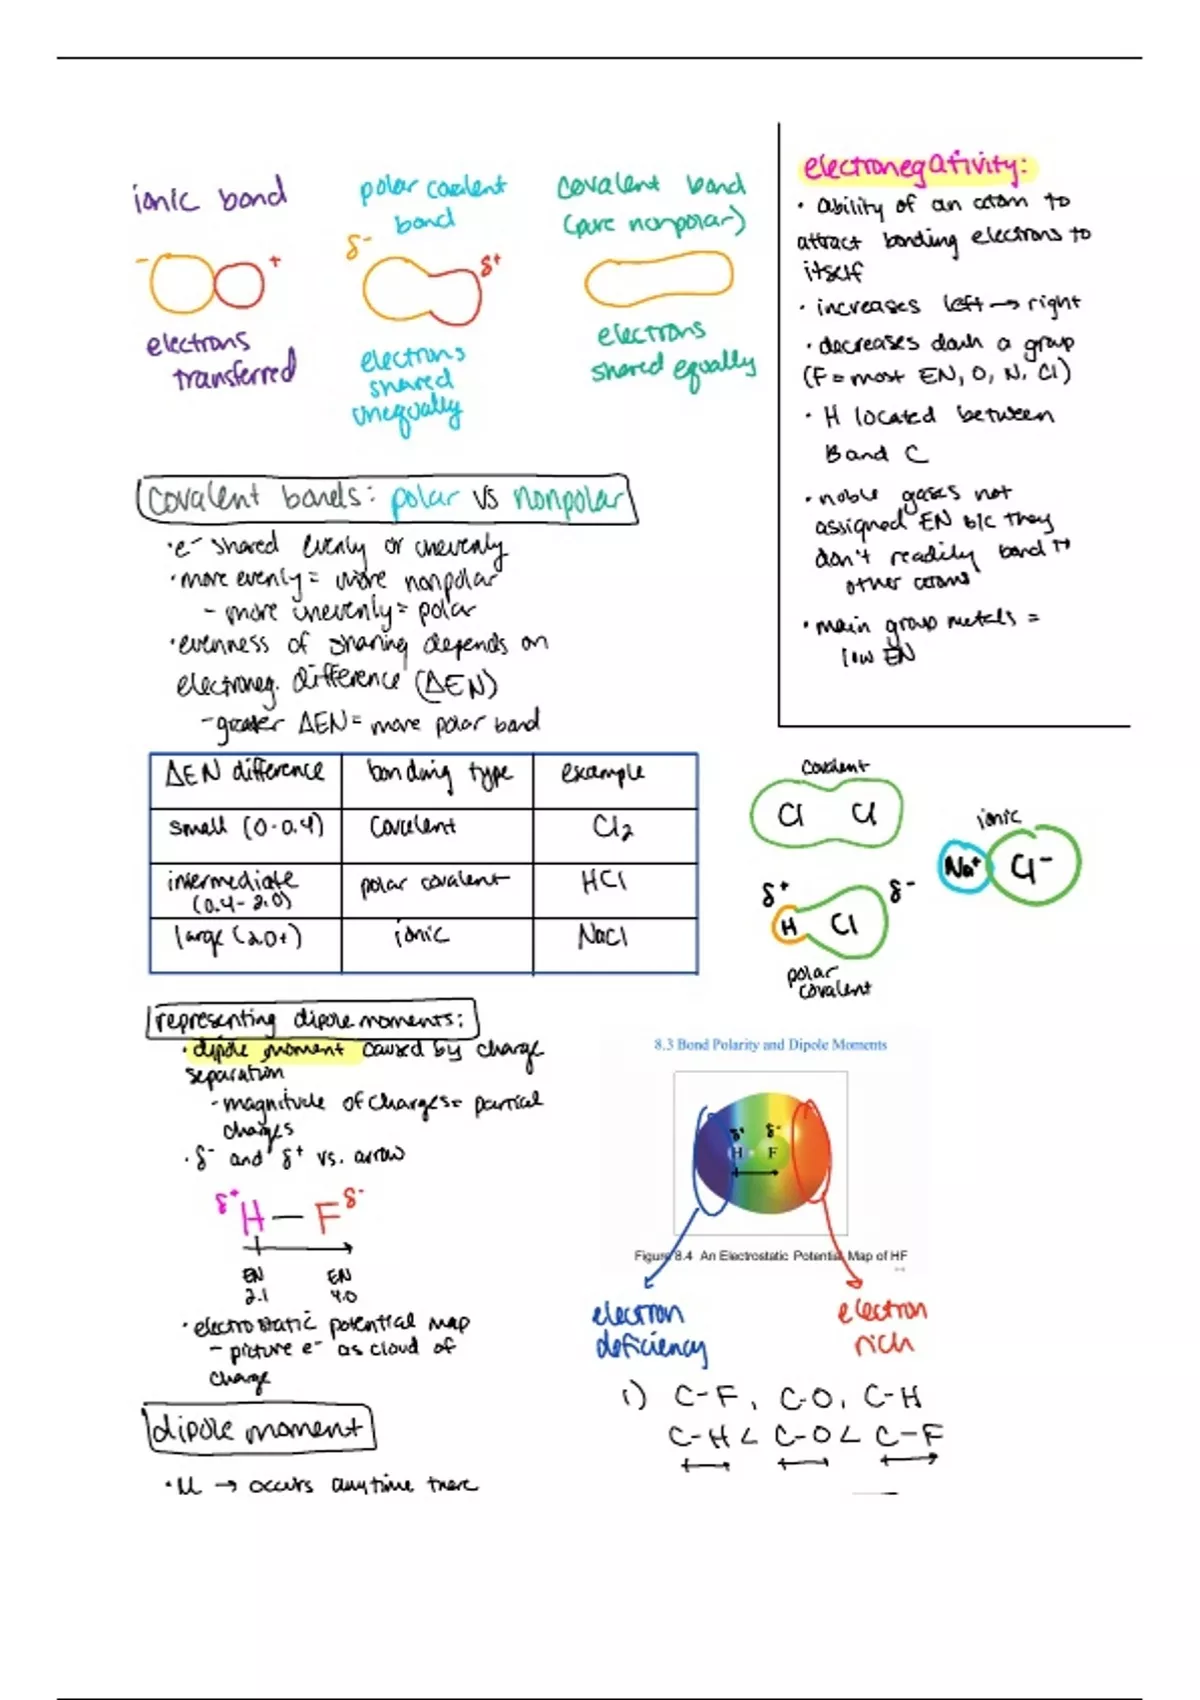 ionic bond
polar covalent
bond
covalent bond
(pure nonpolar)
- +
δ- δ+
electrons
transferred
electrons
shared
unequally
electrons
shared equally
electronegativity:
• ability of an atom to
attract bonding electrons to
itself
• increases left → right
• decreases down a group
(F = most EN, O, N, Cl)
• H located between
B and C
• noble gases not
assigned EN b/c they
don't readily bond to
other atoms
• main group metals =
low EN
covalent bonds: polar vs nonpolar
• e- shared evenly or unevenly
• more evenly = more nonpolar
- more unevenly = polar
• evenness of sharing depends on
electroneg. difference (ΔEN)
- greater ΔEN = more polar bond
ΔEN difference bonding type example
small (0-0.4) covalent Cl2
intermediate
(0.4-2.0) polar covalent HCl
large (2.0+) ionic NaCl
covalent
Cl Cl
ionic
Na+ Cl-
δ+ δ-
H Cl
polar
covalent
representing dipole moments:
• dipole moment caused by charge
separation
- magnitude of charges = partial
charges
• δ- and δ+ vs. arrow
δ+ H — F δ-
EN EN
2.1 4.0
• electrostatic potential map
- picture e- as cloud of
charge
8.3 Bond Polarity and Dipole Moments
δ+ δ-
H F
Figure 8.4 An Electrostatic Potential Map of HF
electron
deficiency
electron
rich
1) C-F, C-O, C-H
C-H < C-O < C-F
dipole moment
• μ → occurs anytime there